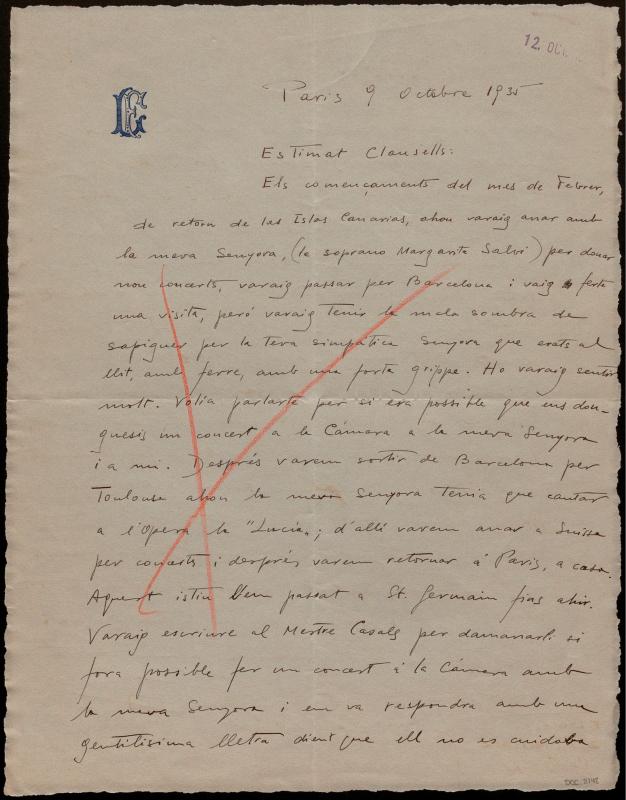 12. OCT.
Paris 9 Octobre 1935
Estimat Clausells:
Els començaments del mes de Febrer,
de retorn de las Islas Canarias, ahon varaig anar amb
la meva Senyora, (la soprano Margarita Salvi) per donar
nou concerts, varaig passar per Barcelona i vaig ferte
una visita, peró varaig tenir la mala sombra de
sapiguer per la teva simpática Senyora que erats al
llit, amb febre, amb una forta grippe. Ho varaig sentir
molt. Volia parlarte per si era possible que ens don-
guesis un concert a la Cámara a la meva Senyora
i a mi. Després varem sortir de Barcelona per
Toulouse ahon la meva Senyora tenia que cantar
a l'Opera la "Lucia"; d'allí varem anar a Suissa
per concerts i després varem retornar á Paris, a casa.
Aquest istiu l'em passat a St. Germain fins ahir.
Varaig escriure al Mestre Casals per damanarli si
fora possible fer un concert á la Cámara amb
la meva Senyora i em va respondra amb una
gentilisima lletra dient que ell no es cuidaba
DOC. 2142